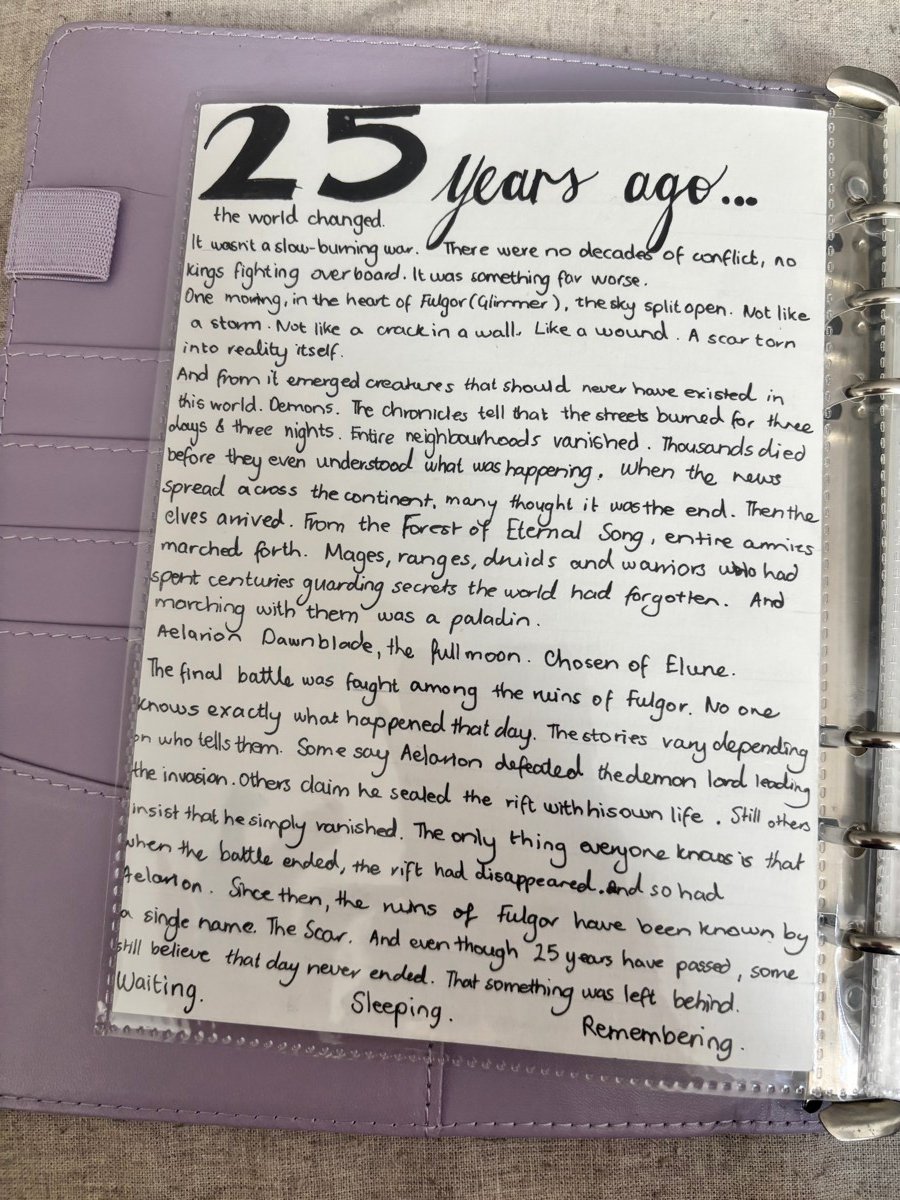 25 years ago...
the world changed.
It wasn't a slow-burning war. There were no decades of conflict, no
kings fighting over board. It was something far worse.
One morning, in the heart of Fulgor (Glimmer), the sky split open. Not like
a storm. Not like a crack in a wall. Like a wound. A scar torn
into reality itself.
And from it emerged creatures that should never have existed in
this world. Demons. The chronicles tell that the streets burned for three
days & three nights. Entire neighbourhoods vanished. Thousands died
before they even understood what was happening. When the news
spread across the continent, many thought it was the end. Then the
elves arrived. From the Forest of Eternal Song, entire armies
marched forth. Mages, ranges, druids and warriors who had
spent centuries guarding secrets the world had forgotten. And
marching with them was a paladin.
Aelarion Dawnblade, the full moon. Chosen of Elune.
The final battle was faught among the ruins of Fulgor. No one
knows exactly what happened that day. The stories vary depending
on who tells them. Some say Aelarion defeated the demon lord leading
the invasion. Others claim he sealed the rift with his own life. Still others
insist that he simply vanished. The only thing everyone knows is that
when the battle ended, the rift had disappeared. And so had
Aelarion. Since then, the ruins of Fulgor have been known by
a single name. The Scar. And even though 25 years have passed, some
still believe that day never ended. That something was left behind.
Waiting. Sleeping. Remembering.